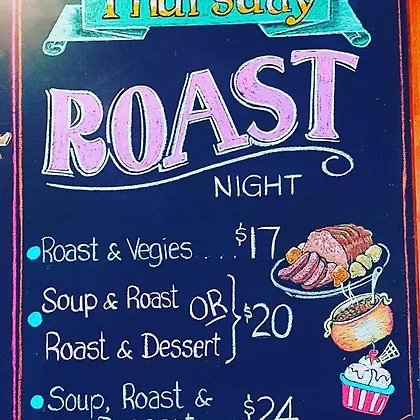 Thursday
ROAST
NIGHT
Roast & Vegies .... $17
Soup & Roast OR
Roast & Dessert } $20
Soup, Roast & $24